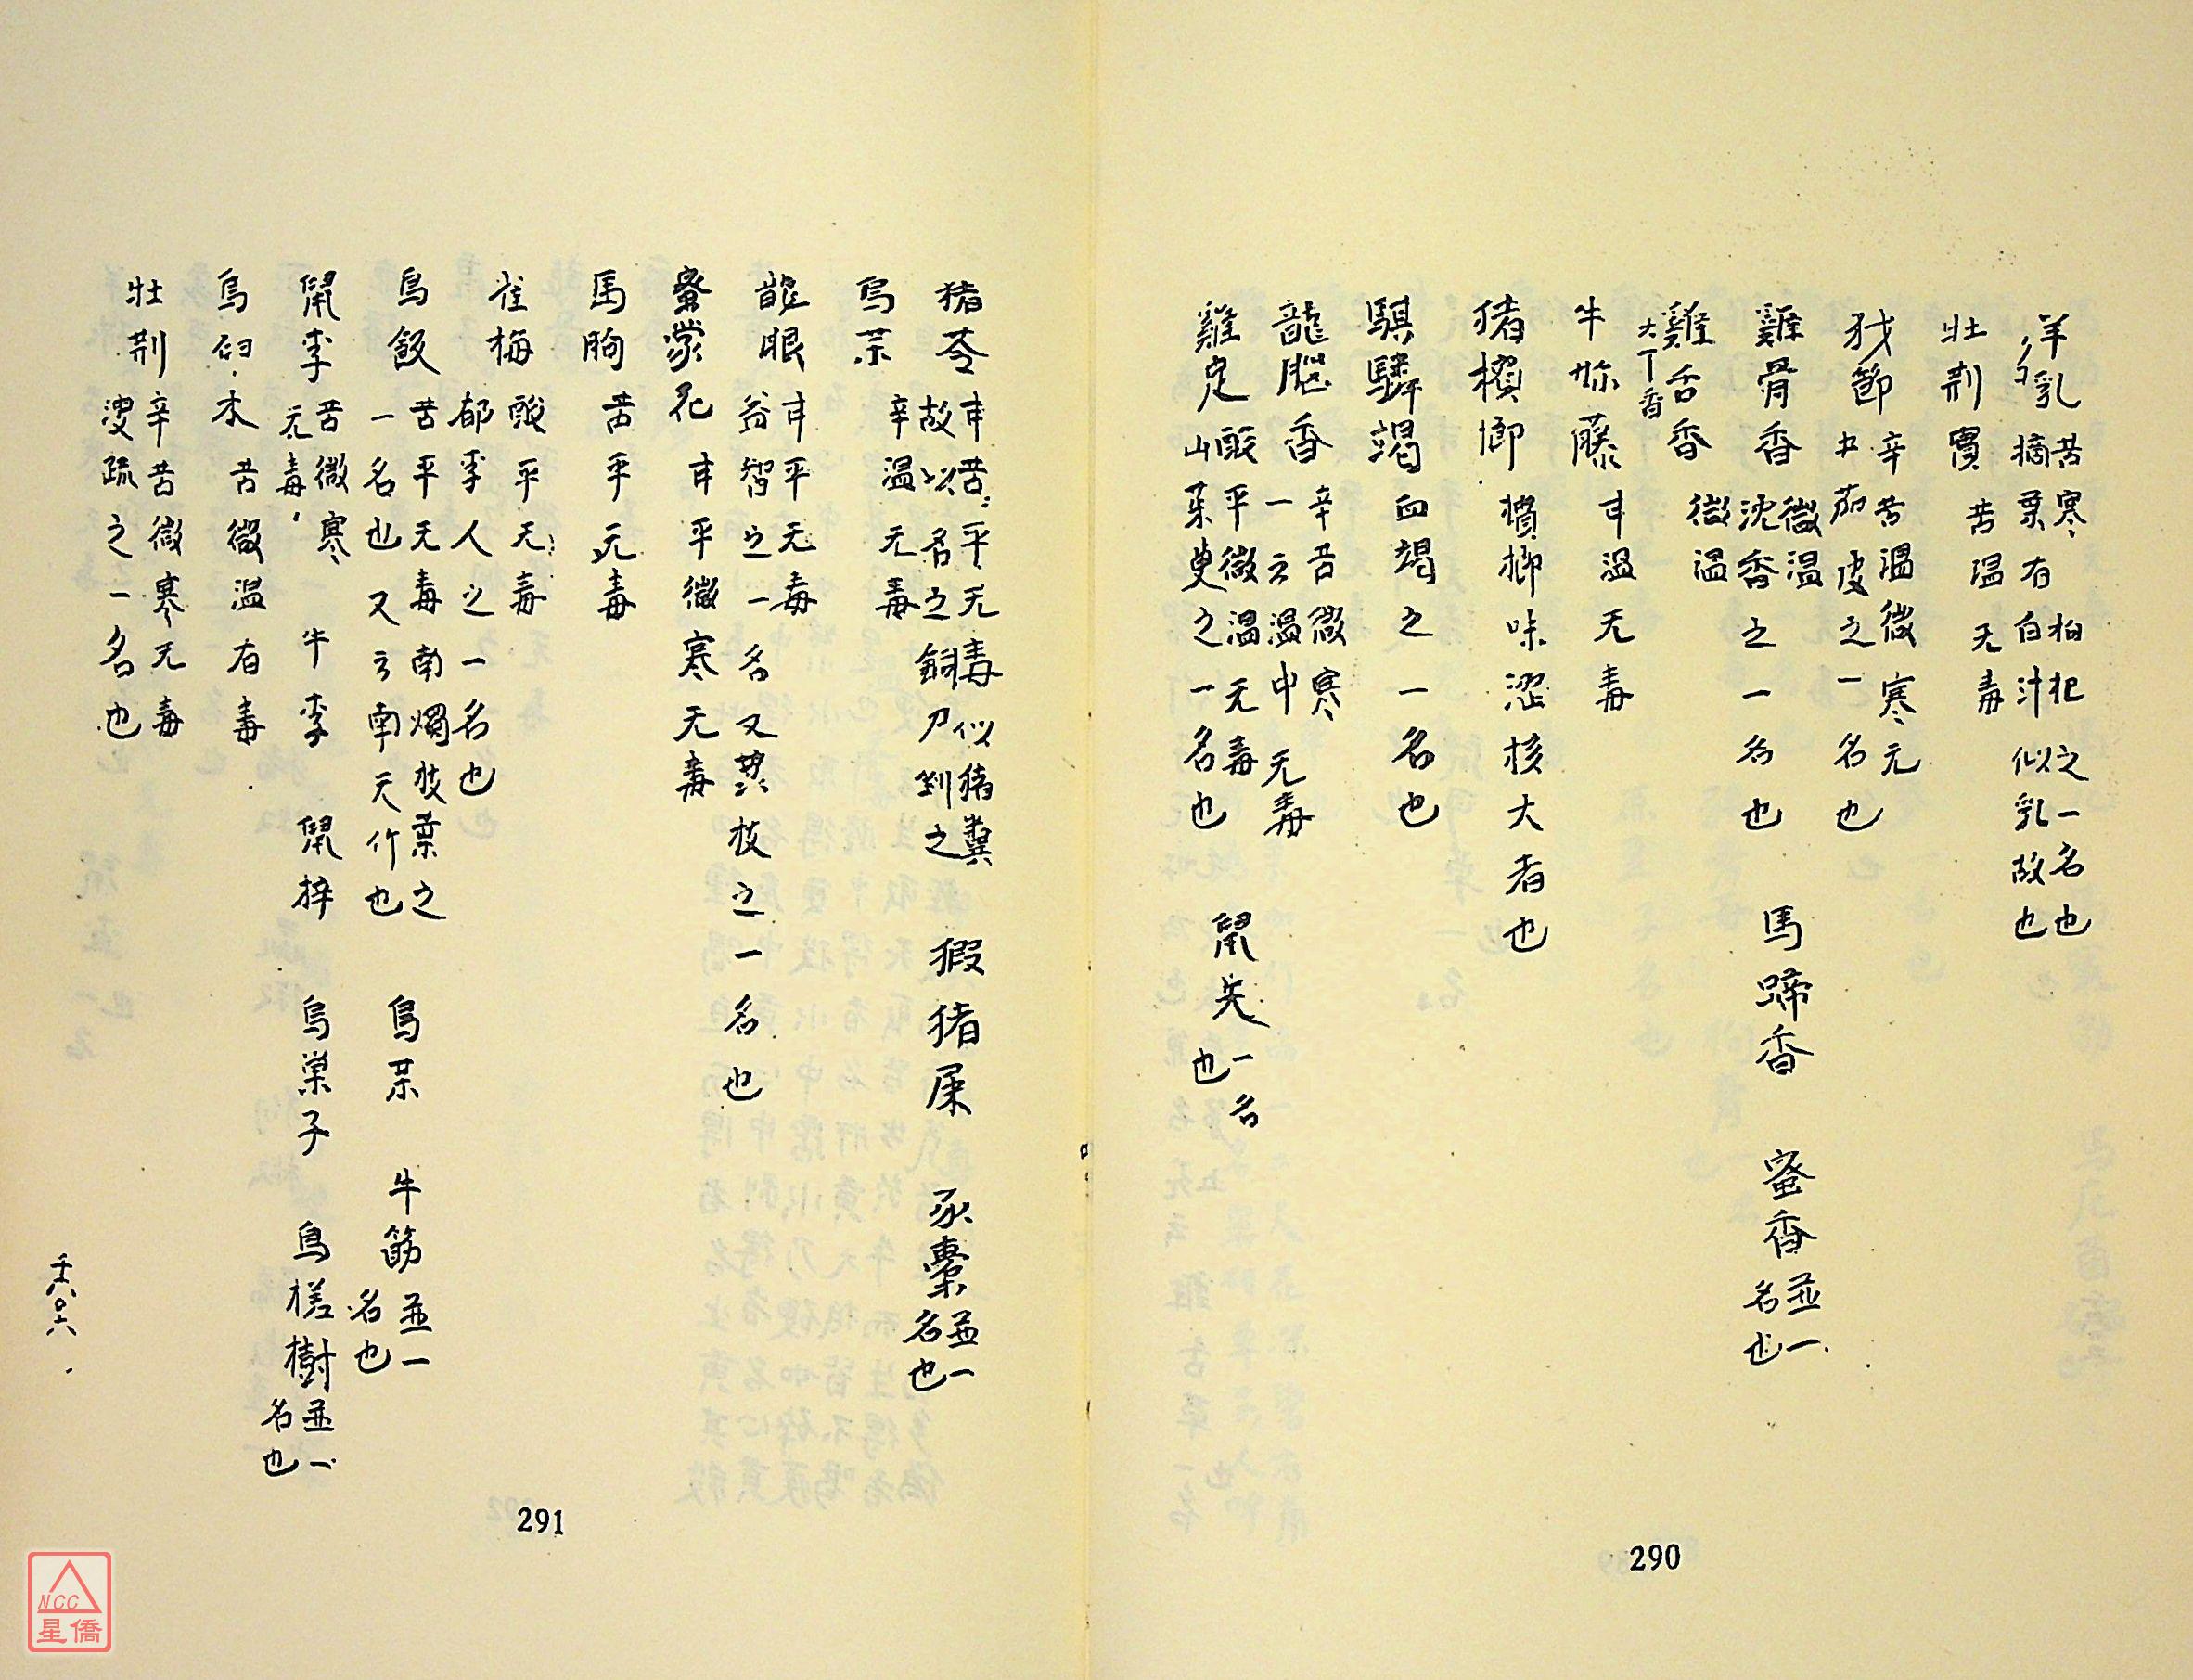 羊乳 苦寒 枸杞之一名也
摘葉有白汁似乳故也
牡荊實 苦温无毒
犲節 辛苦温微寒无
五茄皮之一名也
雞骨香 微温 馬蹄香 蜜香 並一
沈香之一名也 名也
雞舌香 微温
大丁香
牛妳藤 甘温无毒
猪檳榔 檳榔味澀核大者也
騏驎竭 血竭之一名也
龍腦香 辛苦微寒
一云温中无毒
雞足 酸平微温无毒 鼠矢 一名
山茱萸之一名也 也
290
猪苓 甘苦平无毒 似猪糞 猳猪屎 豕橐 並一
故以名之銅刀剉之 名也
烏茶 辛温无毒
龍眼 甘平无毒
益智之一名又茘枝之一名也
蜜蒙花 甘平微寒无毒
馬朐 苦平无毒
雀梅 酸平无毒
郁李人之一名也
烏飯 苦平无毒南燭枝葉之 烏草 牛筋 並一
一名也又云南天竹也 名也
鼠李 苦微寒 牛李 鼠梓 烏巢子 烏槎樹 並一
无毒 名也
烏臼木 苦微温有毒
牡荊 辛苦微寒无毒
溲疏之一名也
291
NCC
星僑